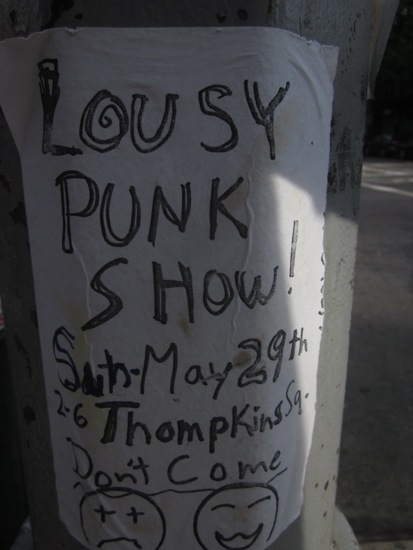 LOUSY
PUNK
SHOW!
Sun-May 29th
2-6 Thompkins Sq.
Don't Come